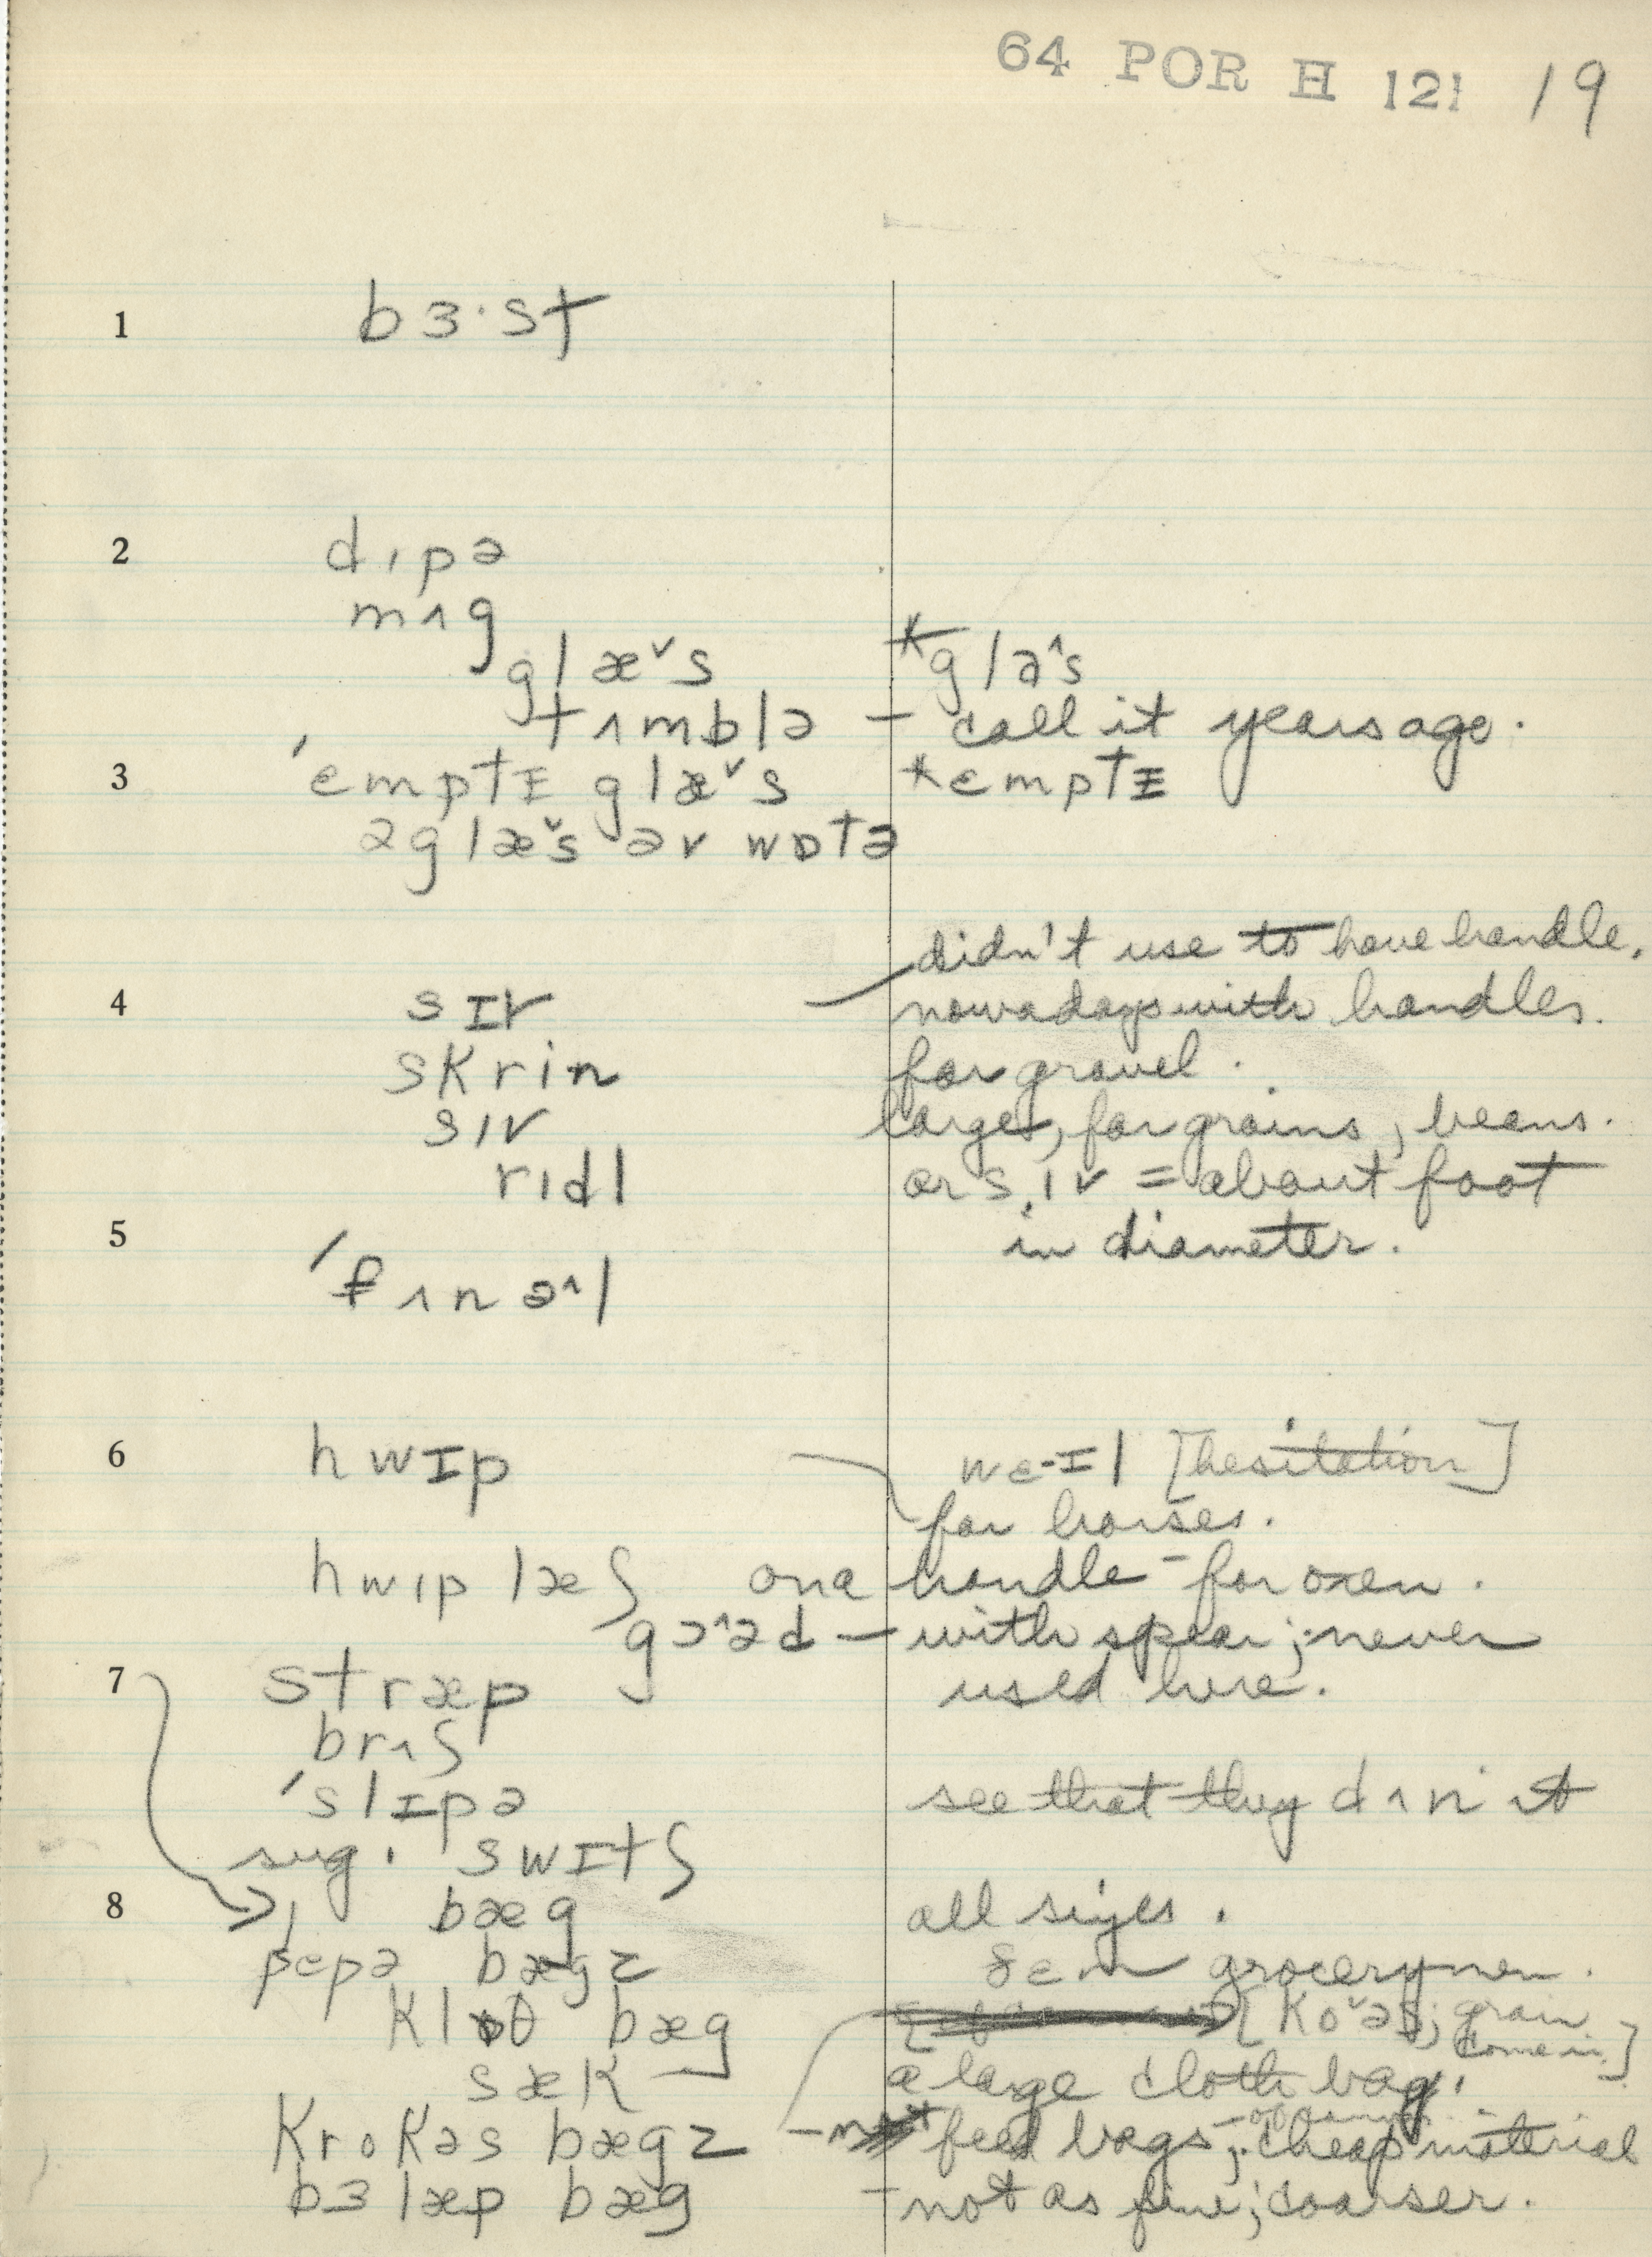 64 POR H 121 19
1 bɜ·st
2 dɪpə
mʌg
glæˇs *glə^s
tʌmblə – call it years ago.
3 ˈemptɪ glæˇs *emptɪ
əglæˇs əv wɒtə
didn't use to have handle,
4 sɪv nowadays with handles.
skrin for gravel.
sɪv large, for grains, beans.
rɪdl or sɪv = about foot
5 in diameter.
ˈfʌnə^l
6 hwɪp we-ɪl [hesitation]
for horses.
hwɪp læʃ on a handle – for oxen.
gɔ^əd – with spear; never
7 stræp used here.
brʌʃ
ˈslɪpə see that they dʌn it
sug. swɪtʃ
8 bæg all sizes.
pepə bægz grocerymen.
klɒθ bæg [koˇəs; grain
come in]
sæk a large cloth bag.
krokəs bægz – feed bags; cheap material
bɜlæp bæg – not as fine; coarser.